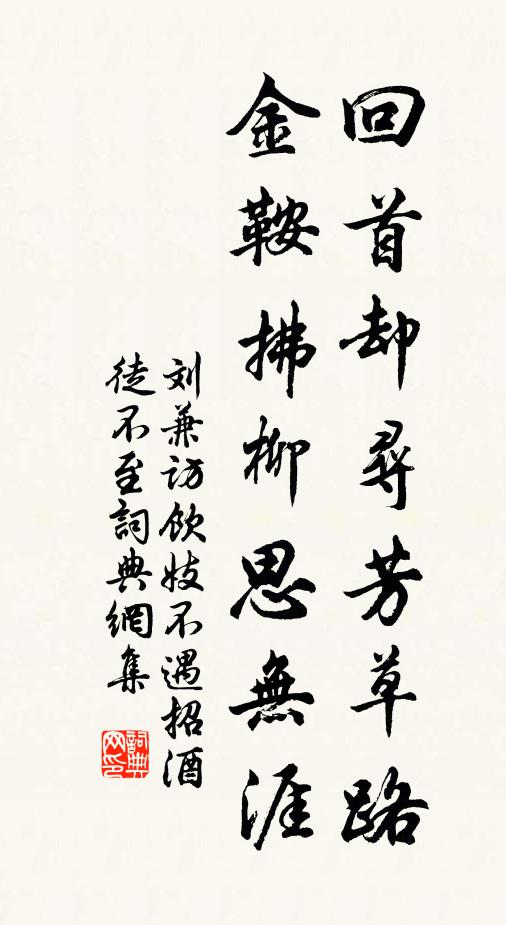 回首却尋芳草路
金鞍拂柳思無涯
刘兼访飲妓不遇招酒
徒不至詞典網集
詞典
网印